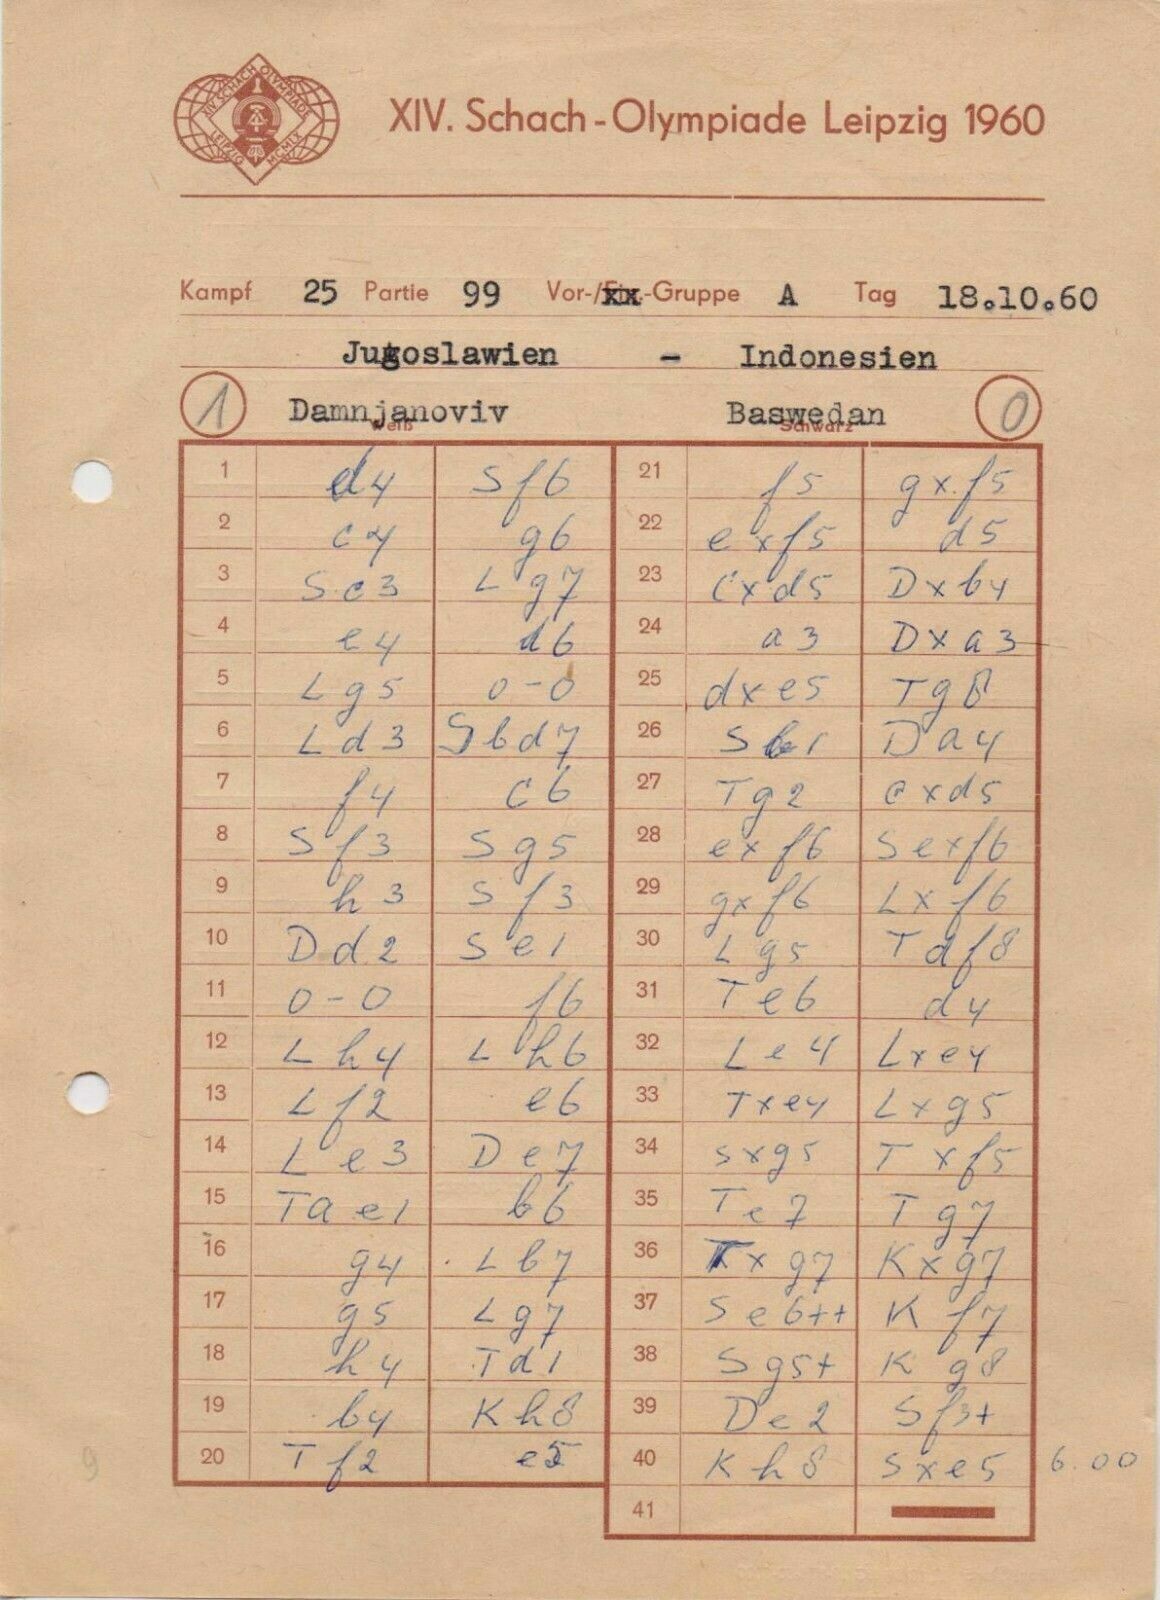 XIV. SCHACH OLYMPIADE
LEIPZIG MCMLX
XIV. Schach-Olympiade Leipzig 1960
Kampf 25 Partie 99 Vor-/xx-Gruppe A Tag 18.10.60
Jugoslawien - Indonesien
1 Damnjanoviv Baswedan 0
Weiß Schwarz
1 d4 Sf6 21 f5 gxf5
2 c4 g6 22 exf5 d5
3 Sc3 Lg7 23 cxd5 Dxb4
4 e4 d6 24 a3 Dxa3
5 Lg5 0-0 25 dxe5 Tg8
6 Ld3 Sbd7 26 Sb1 Da4
7 f4 c6 27 Tg2 cxd5
8 Sf3 Sg5 28 exf6 Sexf6
9 h3 Sf3 29 gxf6 Lxf6
10 Dd2 Se1 30 Lg5 Tdf8
11 0-0 f6 31 Te6 d4
12 Lh4 Lh6 32 Le4 Lxe4
13 Lf2 e6 33 Txe4 Lxg5
14 Le3 De7 34 Sxg5 Txf5
15 Tae1 b6 35 Te7 Tg7
16 g4 Lb7 36 Txg7 Kxg7
17 g5 Lg7 37 Se6++ Kf7
18 h4 Td1 38 Sg5+ Kg8
19 b4 Kh8 39 De2 Sf3+
20 Tf2 e5 40 Kh8 Sxe5 6.00
41
9